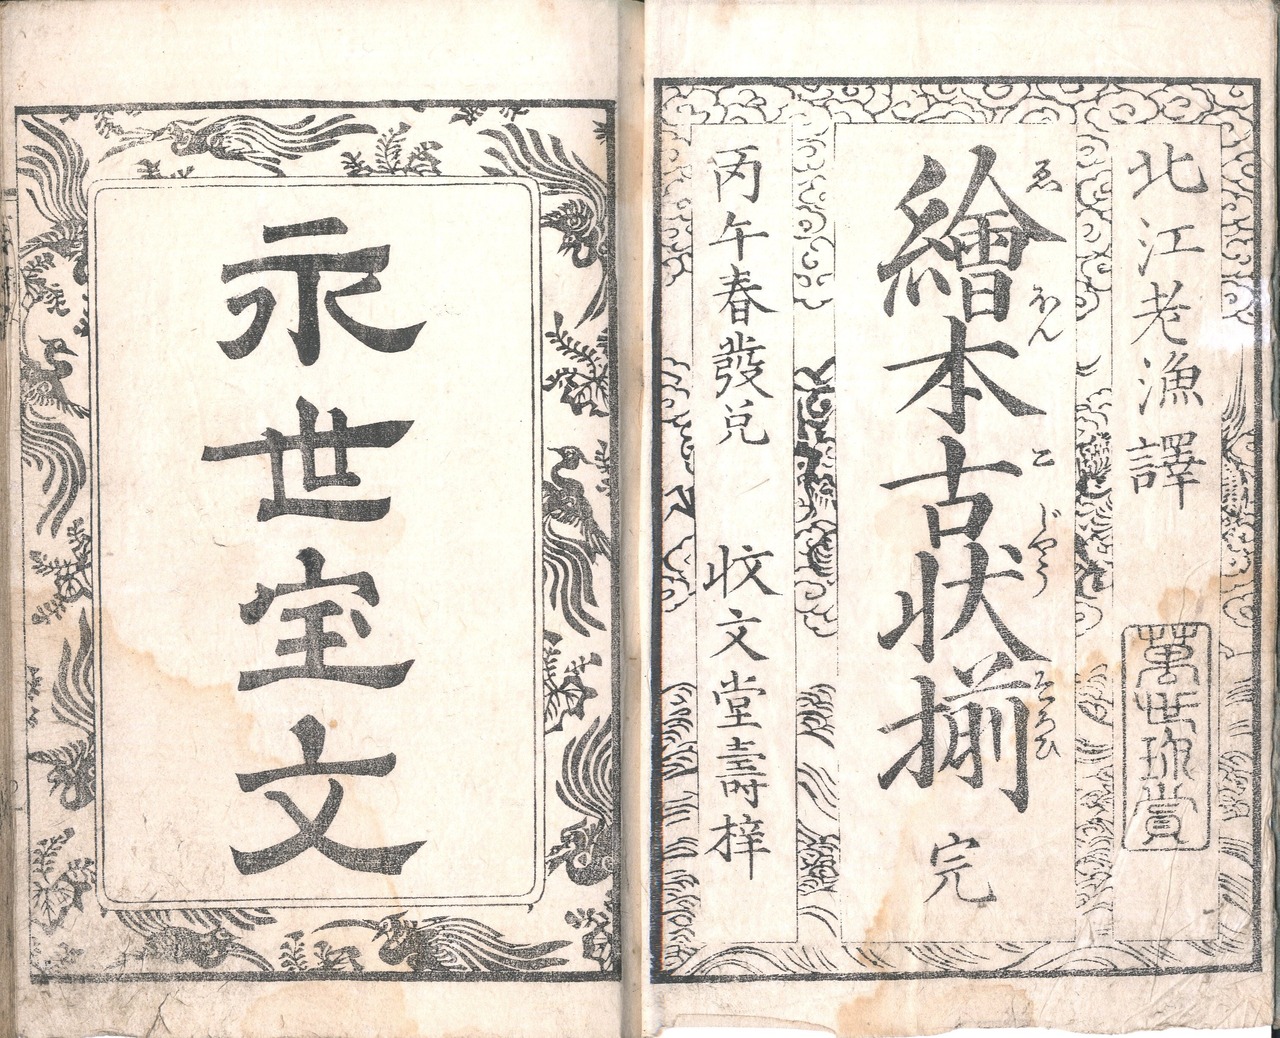 北江老漁譯
萬世珎賞
繪本古状揃 完
ゑ ほん こ じやう そろひ
丙午春發兌 收文堂壽梓
永世宝文